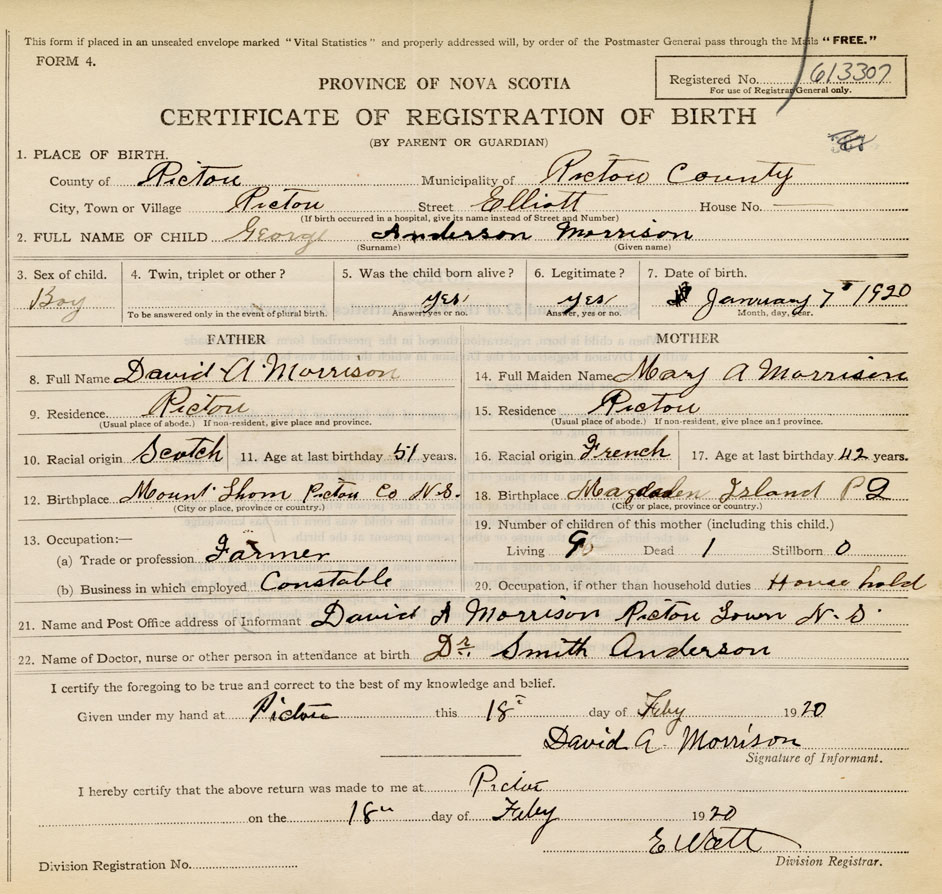 This form if placed in an unsealed envelope marked "Vital Statistics" and properly addressed will, by order of the Postmaster General pass through the Mails "FREE."
FORM 4.
PROVINCE OF NOVA SCOTIA
Registered No. 613307
For use of Registrar General only.
CERTIFICATE OF REGISTRATION OF BIRTH
(BY PARENT OR GUARDIAN)
1. PLACE OF BIRTH.
County of Pictou Municipality of Pictou County
City, Town or Village Pictou Street Elliott House No.
(If birth occurred in a hospital, give its name instead of Street and Number)
2. FULL NAME OF CHILD George Anderson Morrison
(Surname) (Given name)
3. Sex of child. 4. Twin, triplet or other? 5. Was the child born alive? 6. Legitimate? 7. Date of birth.
Boy yes yes January 7 1920
To be answered only in the event of plural birth. Answer, yes or no. Answer, yes or no. Month, day, year.
FATHER MOTHER
8. Full Name David A Morrison 14. Full Maiden Name Mary A Morrison
9. Residence. Pictou 15. Residence Pictou
(Usual place of abode.) If non-resident, give place and province. (Usual place of abode.) If non-resident, give place and province.
10. Racial origin Scotch 11. Age at last birthday 51 years. 16. Racial origin French 17. Age at last birthday 42 years.
12. Birthplace Mount Thom Pictou Co N.S. 18. Birthplace Magdalen Island P Q
(City or place, province or country.) (City or place, province or country.)
19. Number of children of this mother (including this child.)
13. Occupation:—
(a) Trade or profession Farmer Living 9 Dead 1 Stillborn 0
(b) Business in which employed Constable 20. Occupation, if other than household duties House hold
21. Name and Post Office address of Informant David A Morrison Pictou Town N.S.
22. Name of Doctor, nurse or other person in attendance at birth Dr. Smith Anderson
I certify the foregoing to be true and correct to the best of my knowledge and belief.
Given under my hand at Pictou this 18 day of Feby 1920
David A. Morrison
Signature of Informant.
I hereby certify that the above return was made to me at Pictou
on the 18 day of Feby 1920
E Watt
Division Registration No. Division Registrar.